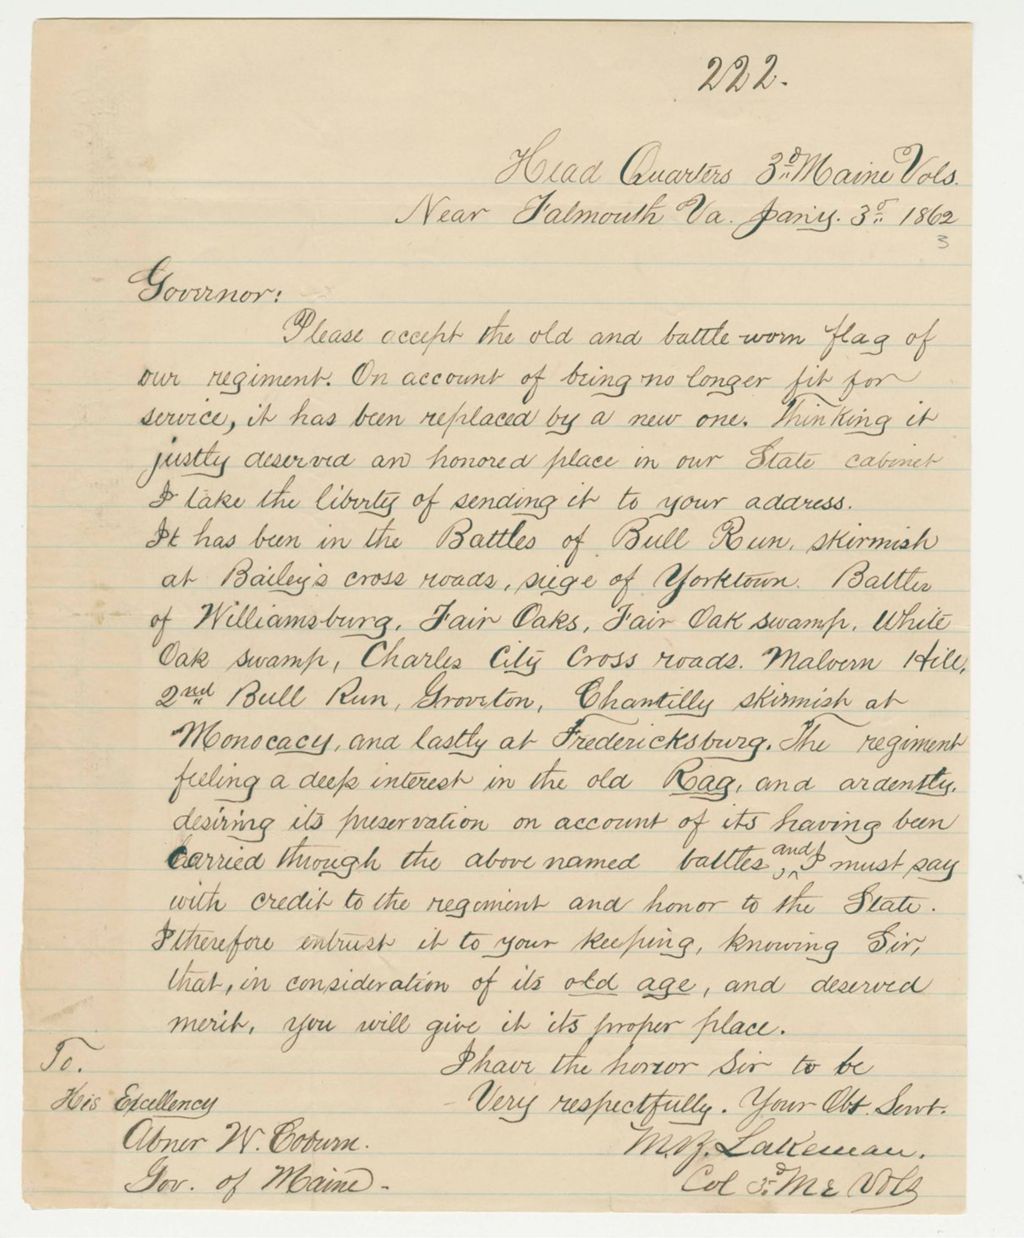 222.
Head Quarters 3d Maine Vols.
Near Falmouth Va. Jan'y. 3d 1862
3
Governor:
Please accept the old and battle-worn flag of
our regiment. On account of being no longer fit for
service, it has been replaced by a new one. Thinking it
justly deserved an honored place in our State cabinet
I take the liberty of sending it to your address.
It has been in the Battles of Bull Run, skirmish
at Bailey's cross roads, siege of Yorktown. Battles
of Williamsburg, Fair Oaks, Fair Oak swamp, White
Oak swamp, Charles City Cross roads. Malvern Hill,
2nd Bull Run, Groveton, Chantilly skirmish at
Monocacy, and lastly at Fredericksburg. The regiment
feeling a deep interest in the old Rag, and ardently,
desiring its preservation on account of its having been
Carried through the above named battles, and I must say
with credit to the regiment and honor to the State.
I therefore entrust it to your keeping, knowing Sir,
that, in consideration of its old age, and deserved
merit, you will give it its proper place.
I have the honor Sir to be
Very respectfully. Your Obt. Servt.
M.B. Lakeman.
Col 3d Me Vols
To.
His Excellency
Abner W. Coburn.
Gov. of Maine -